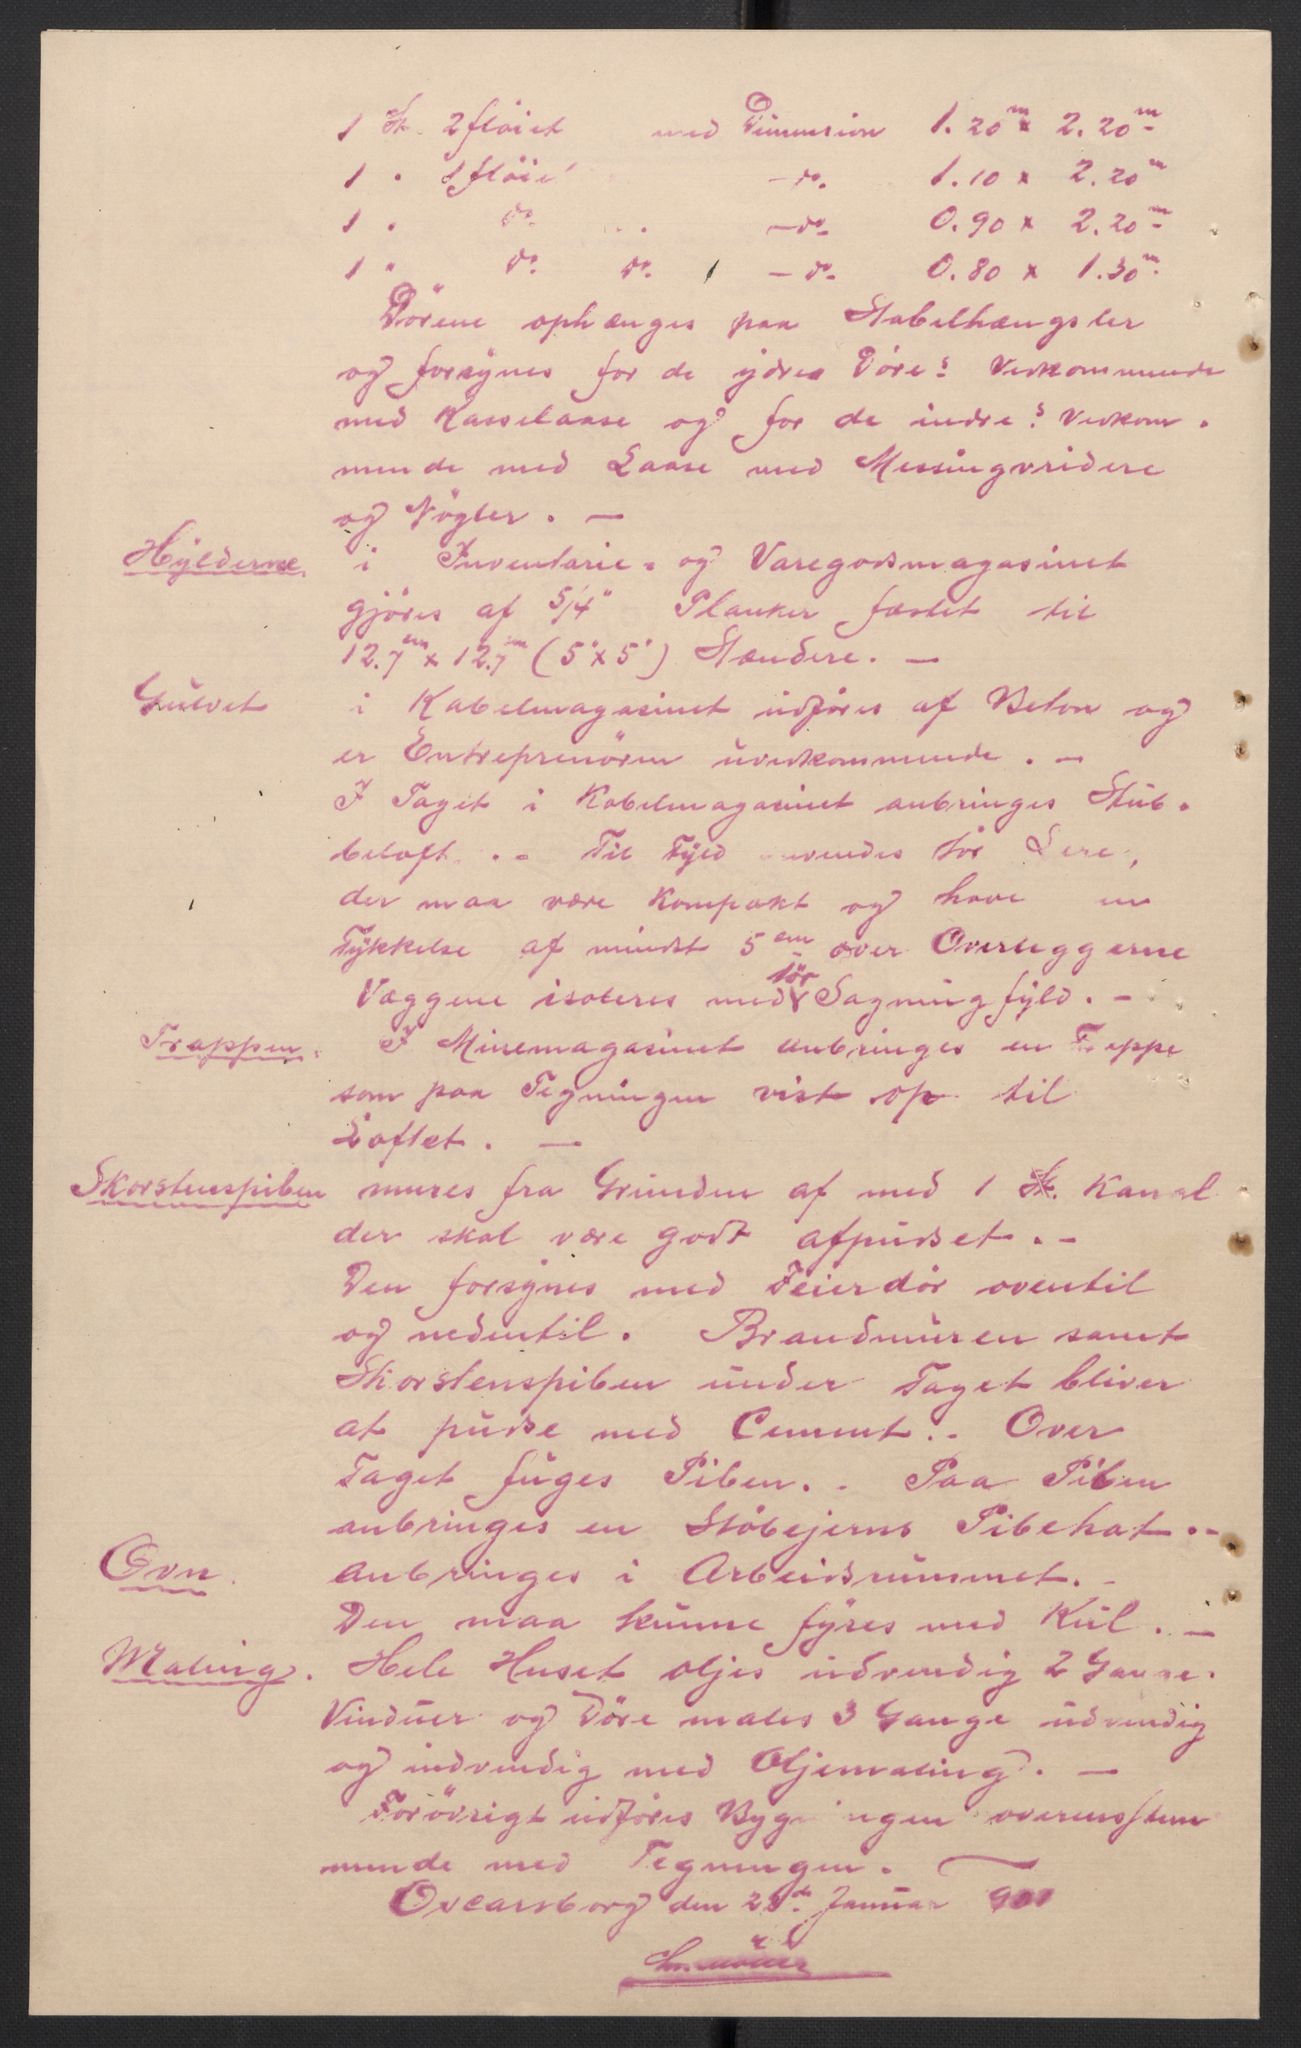 1 Stk. 2fløiet med Dimension 1.20m x 2.20m
1 " 1fløiet -do- 1.10 x 2.20m
1 " do. -do- 0.90 x 2.20m
1 " do. do. -do- 0.80 x 1.30m
Dörene ophænges paa Stabelhængsler
og forsynes for de ydre Döres Vedkommende
med Kasselaase og for de indres Vedkom-
mende med Laase med Messingvridere
og Nögler. -
Hylderne i Inventarie- og Varegodsmagasinet
gjöres af 5/4" Planker fæstet til
12.7cm x 12.7cm (5" x 5") Stændere. -
Gulvet i Kabelmagasinet udföres af Beton og
er Entreprenören uvedkommende. -
I Taget i Kabelmagasinet anbringes Stub-
beloft. - Til Fyld anvendes tör Lere,
der maa være kompakt og have en
Tykkelse af mindst 5cm over Overliggerne
Væggene isoleres med tör Sagmugfyld. -
Trappen. I Minemagasinet anbringes en Trappe
som paa Tegningen vist op til
Loftet. -
Skorstenspiben mures fra Grunden af med 1 Stk. Kanal
der skal være godt afpudset. -
Den forsynes med Feierdör oventil
og nedentil. Brandmuren samt
Skorstenspiben under Taget bliver
at pudse med Cement. - Over
Taget fuges Piben. - Paa Piben
anbringes en Stöbejerns Pibehat. -
Ovn. anbringes i Arbeidsrummet. -
Den maa kunne fyres med Kul. -
Maling. Hele Huset oljes udvendig 2 Gange.
Vinduer og Döre males 3 Gange udvendig
og indvendig med Oljemaling. -
Forövrigt udföres Bygningen overensstem
mende med Tegningen. -
Oscarsborg den 23de Januar 900